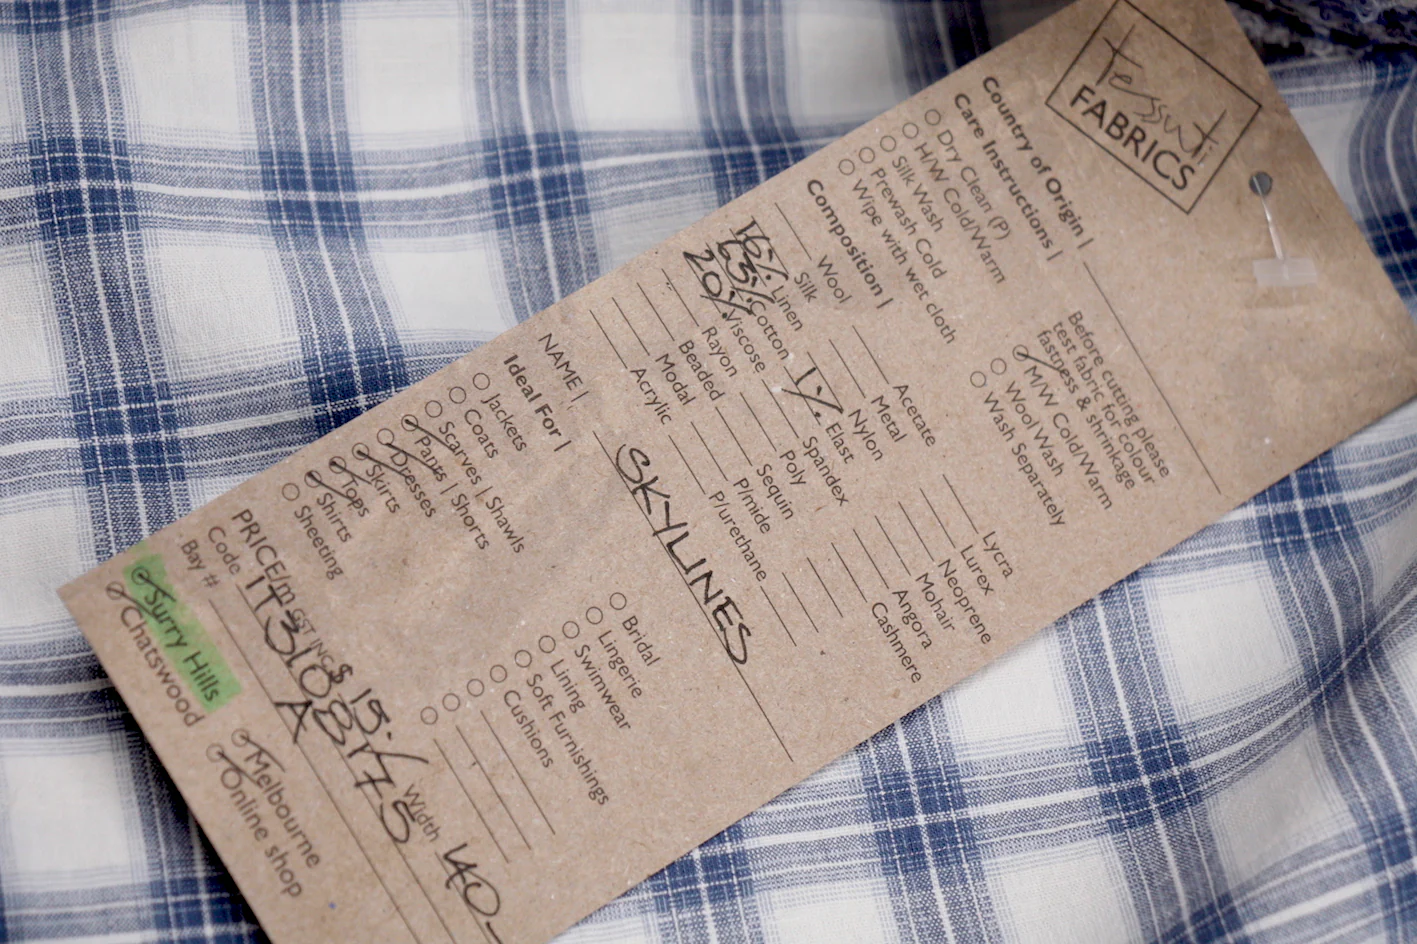 Tessuti
FABRICS
Country of Origin |
Care Instructions |
Dry Clean (P)
H/W Cold/Warm
Silk Wash
Prewash Cold
Wipe with wet cloth
Before cutting please
test fabric for colour
fastness & shrinkage
M/W Cold/Warm
Wool Wash
Wash Separately
Composition |
Wool Acetate Lycra
Silk Metal Lurex
16% Linen Nylon Neoprene
63% Cotton 1% Elast Mohair
20% Viscose Spandex Angora
Rayon Poly Cashmere
Beaded Sequin
Modal P/mide
Acrylic P/urethane
NAME | SKYLINES
Ideal For |
Jackets
Coats
Scarves | Shawls
Pants | Shorts
Dresses
Skirts
Tops
Shirts
Sheeting
Bridal
Lingerie
Swimwear
Lining
Soft Furnishings
Cushions
PRICE/m GST INC $ 19.- Width 140-
Code
Bay # A
Surry Hills Melbourne
Chatswood Online shop